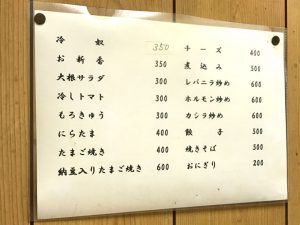 冷奴 350
お新香 350
大根サラダ 300
冷しトマト 300
もろきゅう 300
にらたま 400
たまご焼き 400
納豆入りたまご焼き 600
チーズ 400
煮込み 500
レバニラ炒め 600
ホルモン炒め 600
カシラ炒め 600
餃子 500
焼きそば 500
おにぎり 200